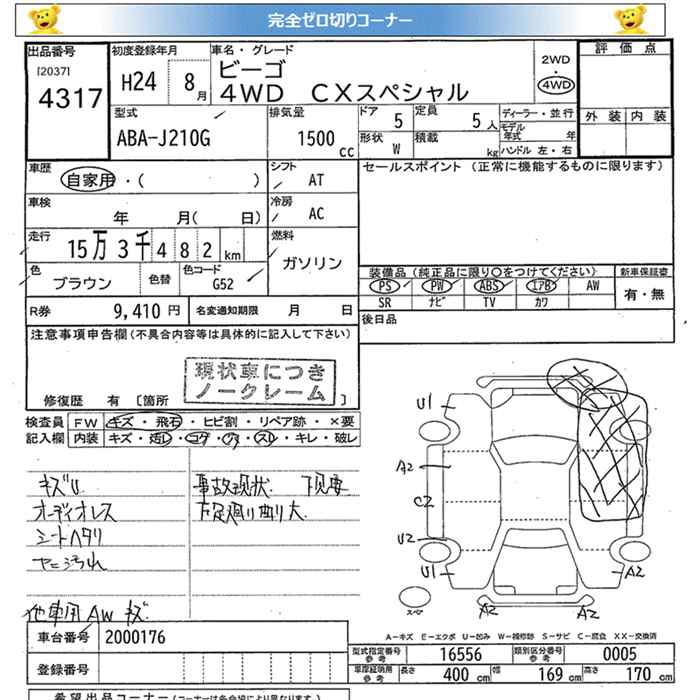 完全ゼロ切りコーナー
出品番号 初度登録年月 車名・グレード 評価点
[2037] 4317 H24 8月 ビーゴ 2WD
4WD CXスペシャル 4WD
型式 排気量 ドア 定員 ディーラー・並行 外装 内装
ABA-J210G 1500cc 5 5人 モデル年式 年
形状 W 積載 kg ハンドル 左・右
車歴 シフト セールスポイント (正常に機能するものに限ります)
自家用・( ) AT
車検 冷房
年 月( 日) AC
走行 燃料
15万3千482km ガソリン
色 色替 色コード 装備品(純正品に限り○をつけてください) 新車保証書
ブラウン G52 PS PW ABS エアB AW 有・無
SR ナビ TV カワ
R券 9,410円 名変通知期限 月 日 後日品
注意事項申告欄(不具合内容等は具体的に記入して下さい)
現状車につき
ノークレーム
修復歴 有 [箇所 ]
検査員 FW キズ・飛石・ヒビ割・リペア跡・×要
記入欄 内装 キズ・汚レ・コゲ・アナ・スレ・キレ・破レ
キズU 事故現状 下見要
オーディオレス 下足廻り曲り大
シートヘタリ
ヤニ汚れ
他車用AW キズ
U1
A2
C2
U2
U1 A2
A2 A2
A-キズ E-エクボ U-凹み W-補修跡 S-サビ C-腐食 XX-交換済
車台番号 2000176
型式指定番号 参考 16556 類別区分番号 参考 0005
登録番号 長さ 400cm 幅 169cm 高さ 170cm
希望出品コーナー